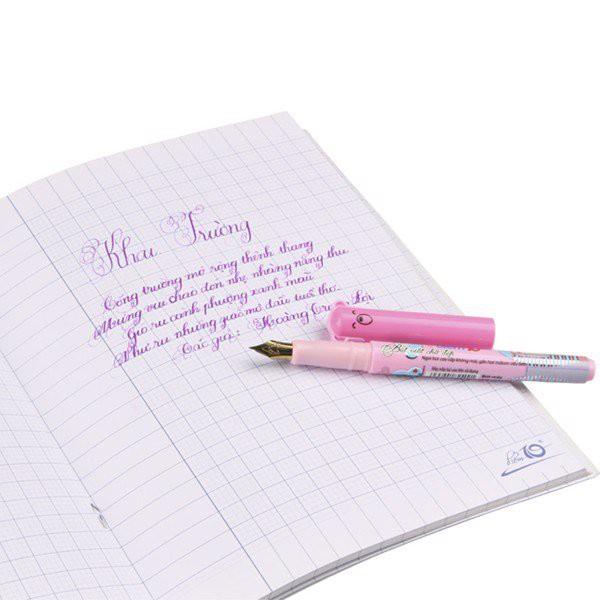 Khai Trường
Cổng trường mở rộng thênh thang
Mừng vui chào đón nhẹ nhàng nắng thu
Gió ru cành phượng xanh màu
Như ru những giấc mơ đầu tuổi thơ.
Tác giả: Hoàng Lợi
Bút viết chữ đẹp
điểm 10